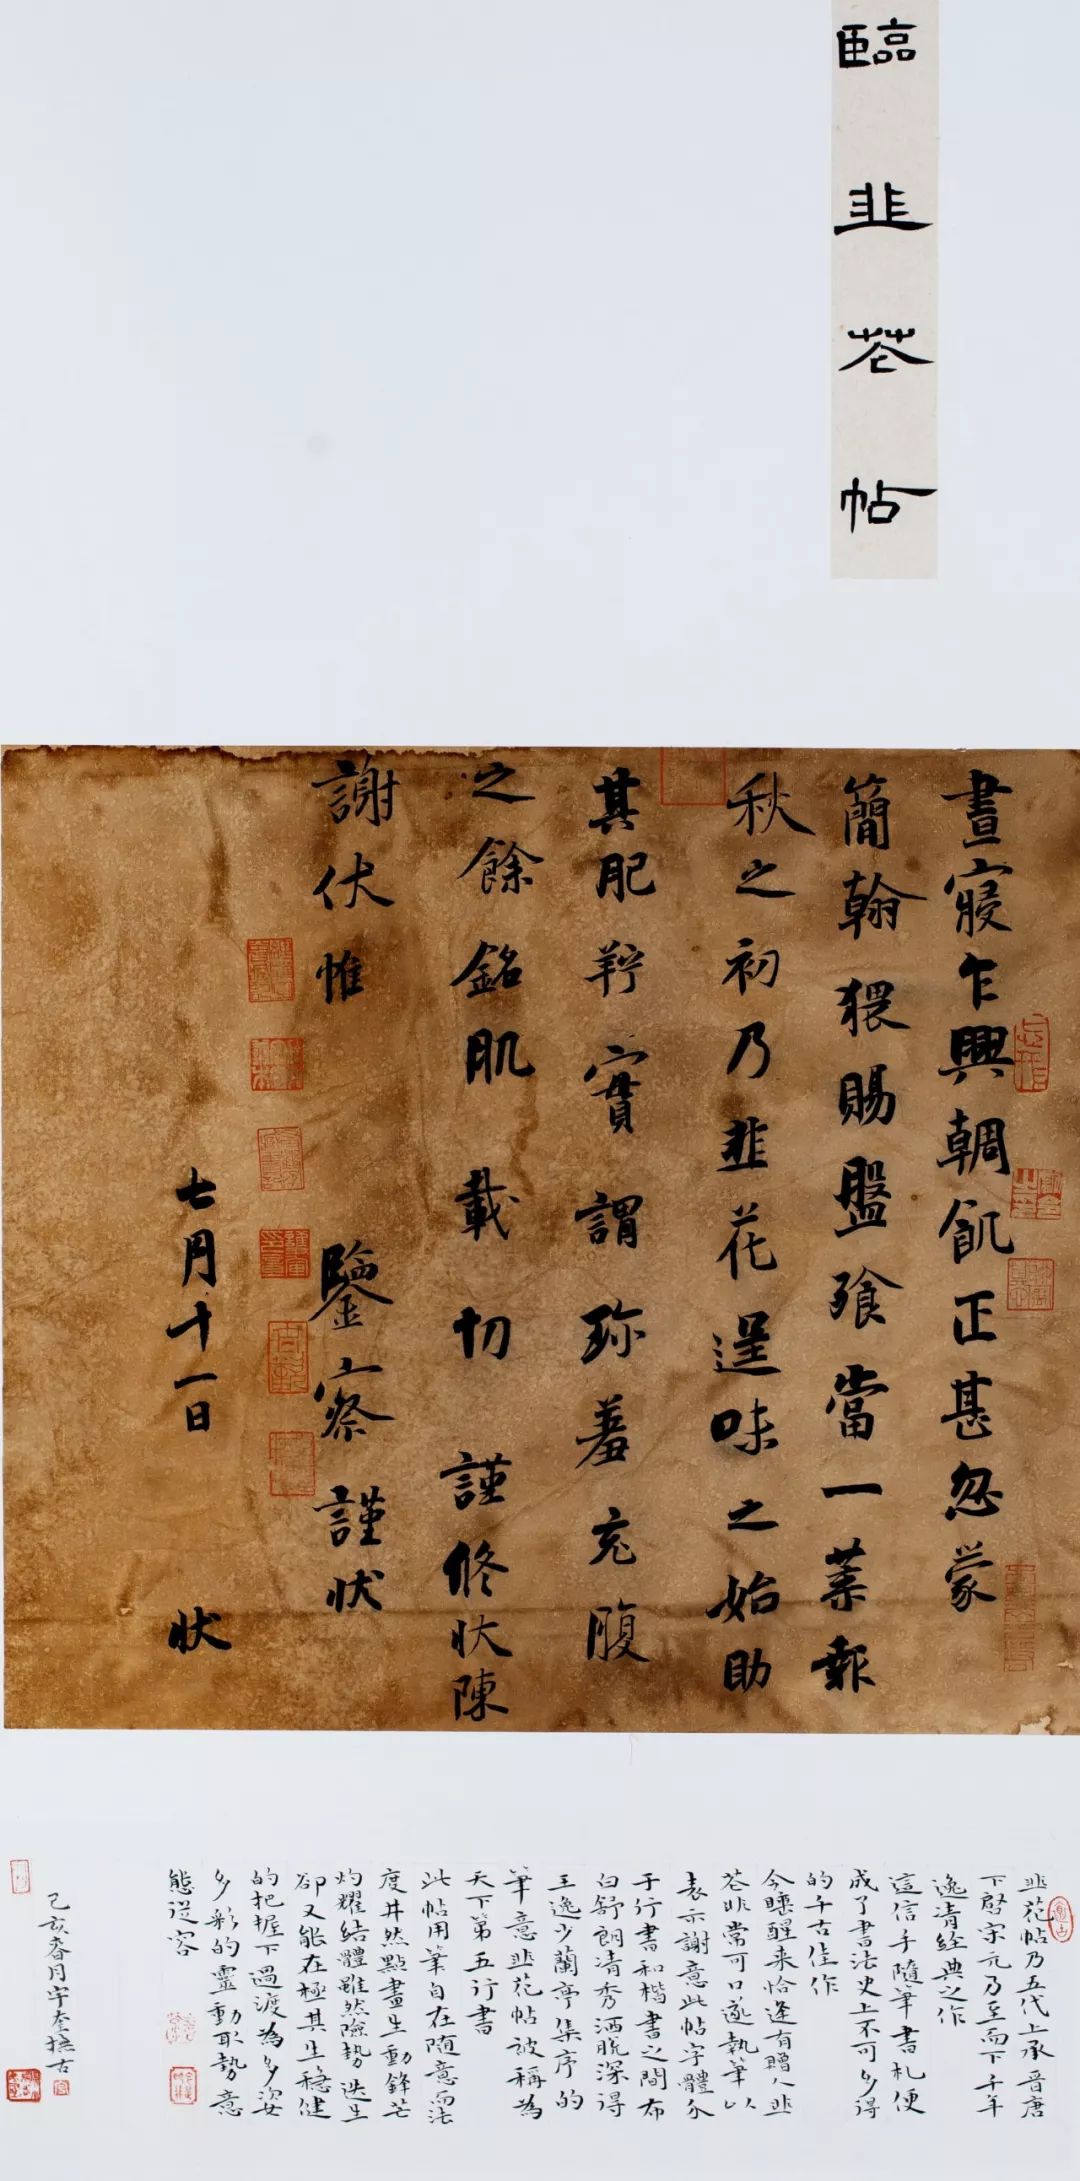 臨韭花帖
晝寢乍興輖飢正甚忽蒙
簡翰猥賜盤飧當一葉報
秋之初乃韭花逞味之始助
其肥羜實謂珍羞充腹
之餘銘肌載切謹修狀陳
謝伏惟鑒察謹狀
七月十一日狀
韭花帖乃五代上承晉唐
下啓宋元乃至而下千年
逸清經典之作
這信手隨筆書札便
成了書法史上不可多得
的千古佳作
今睡醒来恰逢有贈人韭
花非常可口遂執筆以
表示謝意此帖字體介
于行書和楷書之間布
白舒朗清秀洒脱深得
王逸少蘭亭集序的
筆意韭花帖被稱為
天下第五行書
此帖用筆自在随意而法
度井然點畫生動鋒芒
灼耀結體雖然險勢迭生
卻又能在極其生穩健
的把握下過渡為多姿
多彩的靈動取勢意
態從容
己亥春月宇奎撫古